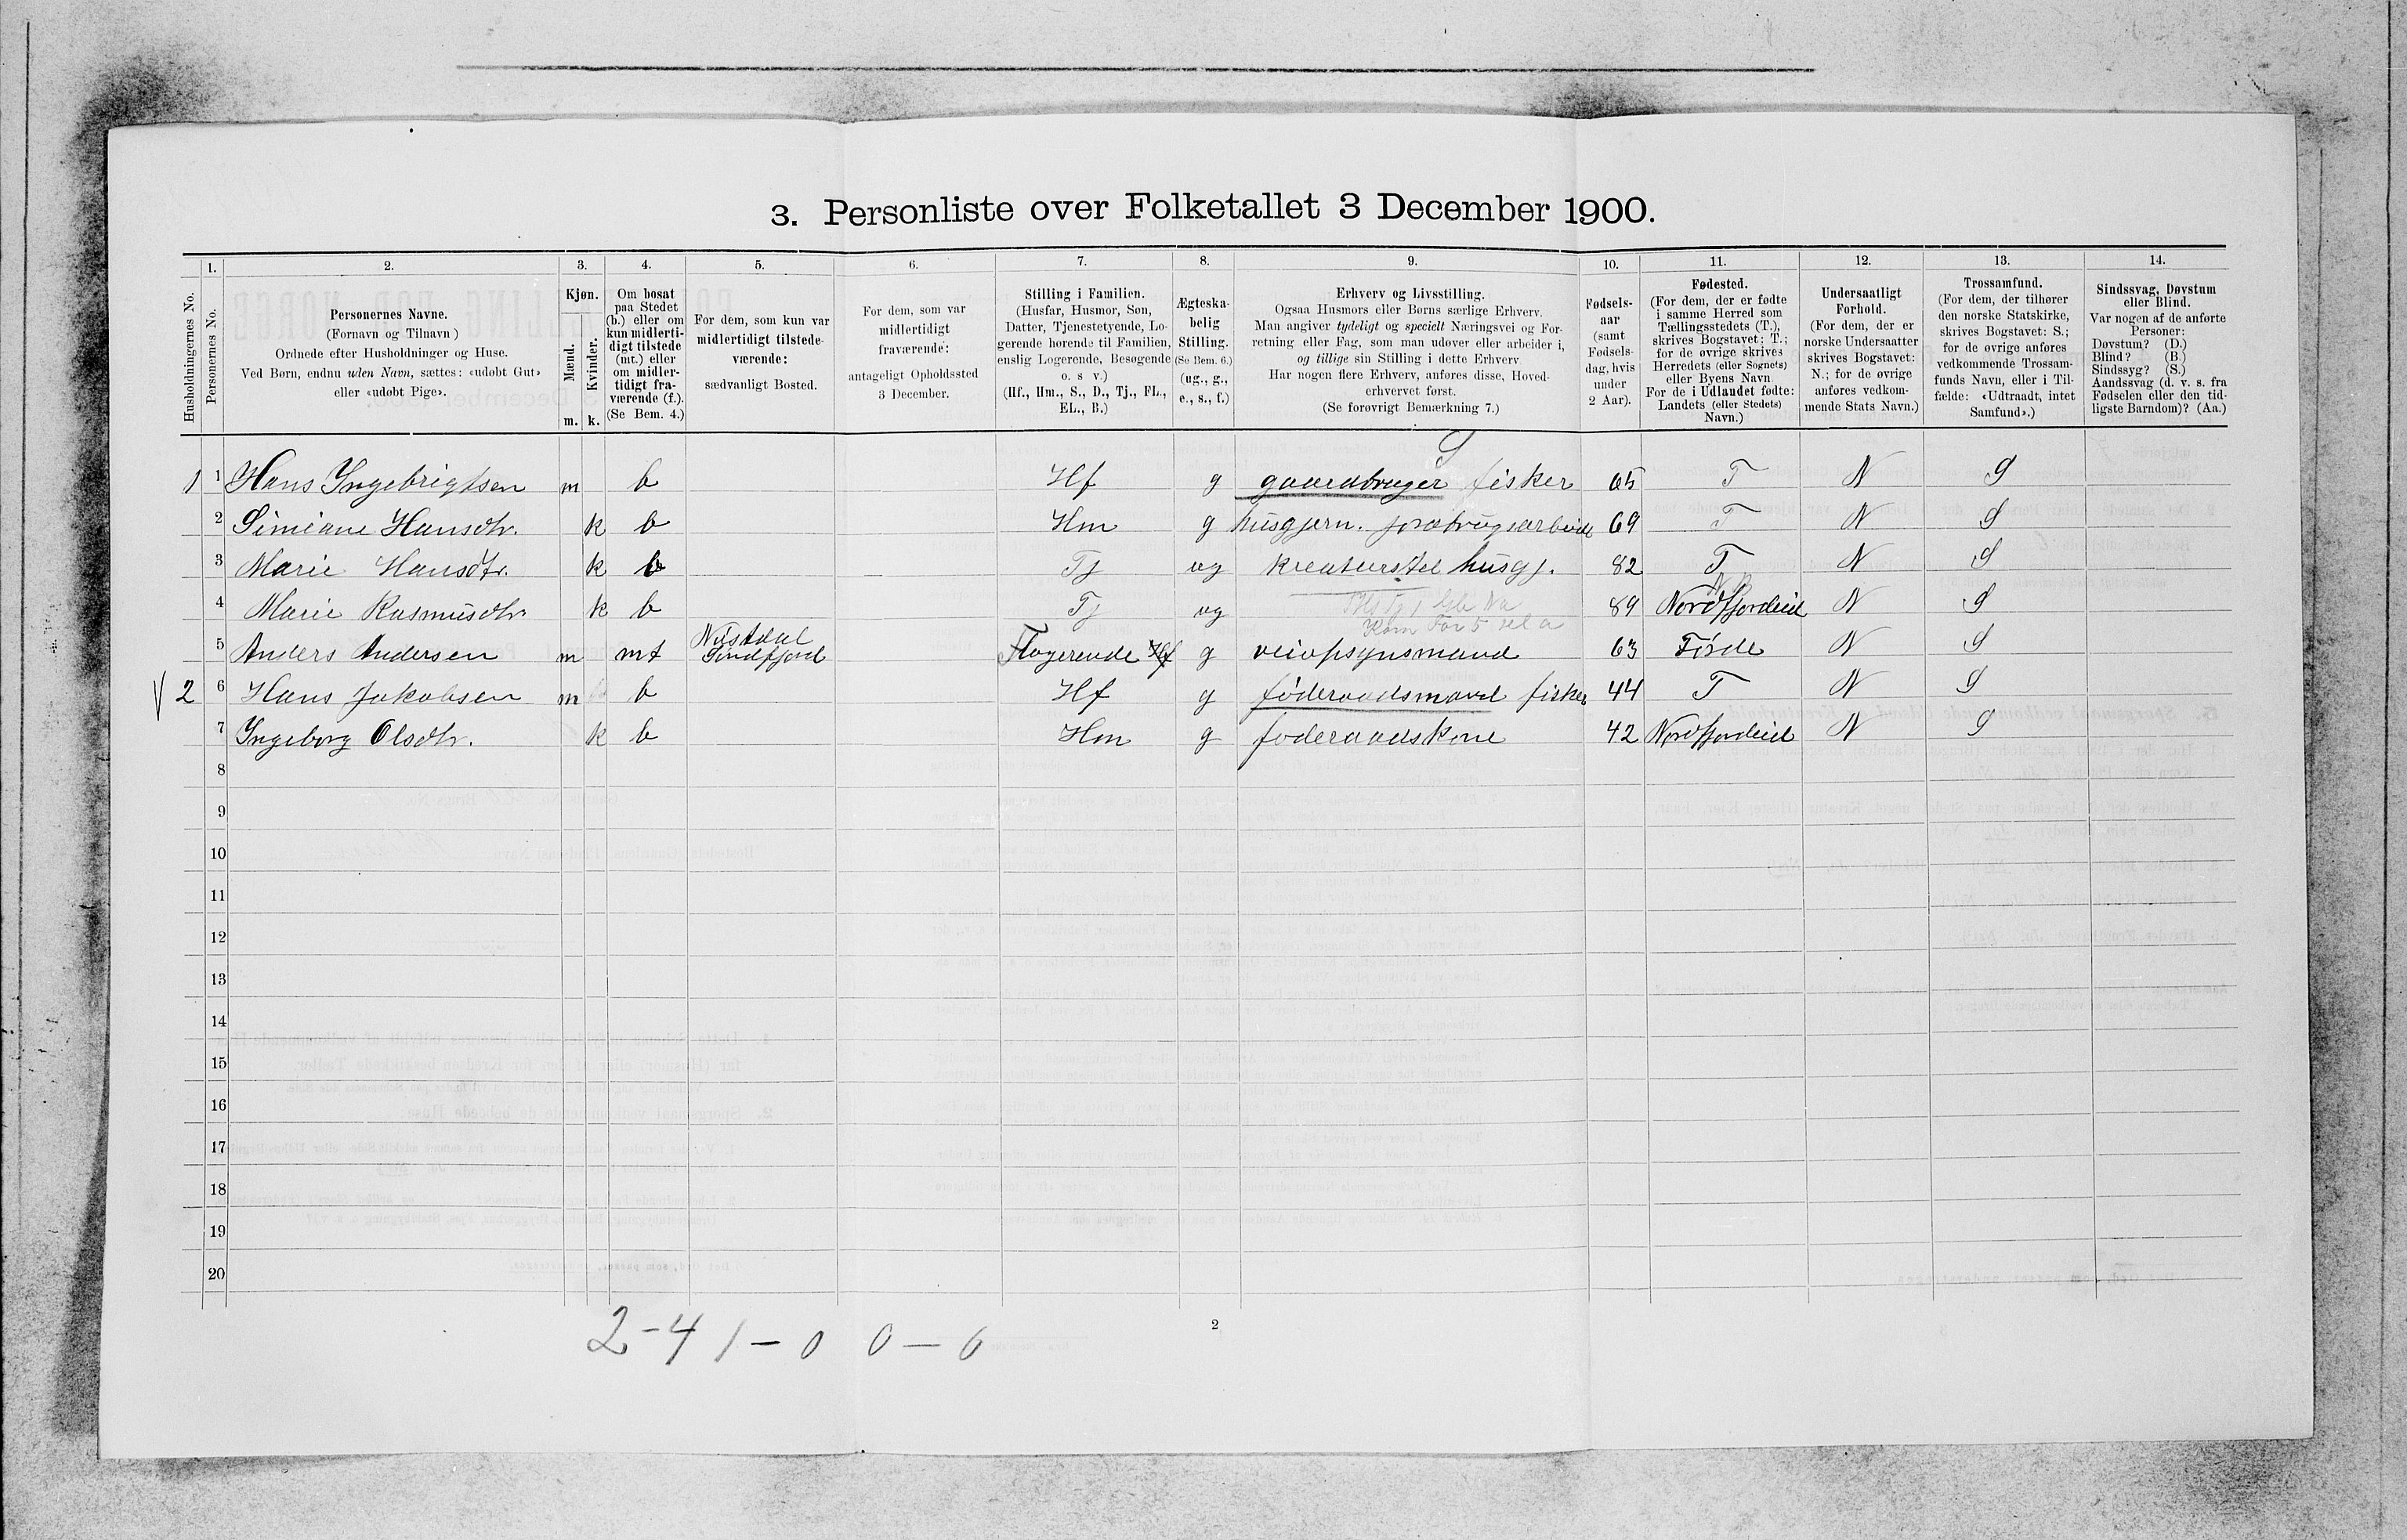 3. Personliste over Folketallet 3 December 1900.
Husholdningernes No.
1. Personernes No.
2. Personernes Navne.
(Fornavn og Tilnavn )
Ordnede efter Husholdninger og Huse.
Ved Børn, endnu uden Navn, sættes: «udøbt Gut»
eller «udøbt Pige».
3. Kjøn.
Mænd. m.
Kvinder. k.
4. Om bosat
paa Stedet
(b.) eller om
kun midlerti-
digt tilstede
(mt.) eller
om midler-
tidigt fra-
værende (f.).
(Se Bem. 4.)
5. For dem, som kun var
midlertidigt tilstede-
værende:
sædvanligt Bosted.
6. For dem, som var
midlertidigt
fraværende:
antageligt Opholdssted
3 December.
7. Stilling i Familien.
(Husfar, Husmor, Søn,
Datter, Tjenestetyende, Lo-
gerende hørende til Familien,
enslig Logerende, Besøgende
o. s v.)
(Hf., Hm., S., D., Tj., FL.,
EL., B.)
8. Ægteska-
belig
Stilling.
(Se Bem. 6.)
(ug., g.,
e., s., f.)
9. Erhverv og Livsstilling.
Ogsaa Husmors eller Børns særlige Erhverv.
Man angiver tydeligt og specielt Næringsvei og For-
retning eller Fag, som man udøver eller arbeider i,
og tillige sin Stilling i dette Erhverv.
Har nogen flere Erhverv, anføres disse, Hoved-
erhvervet først.
(Se forøvrigt Bemærkning 7.)
10. Fødsels-
aar
(samt
Fødsels-
dag, hvis
under
2 Aar).
11. Fødested.
(For dem, der er fødte
i samme Herred som
Tællingsstedets (T.),
skrives Bogstavet: T.;
for de øvrige skrives
Herredets (eller Sognets)
eller Byens Navn
For de i Udlandet fødte:
Landets (eller Stedets)
Navn.)
12. Undersaatligt
Forhold.
(For dem, der er
norske Undersaatter
skrives Bogstavet:
N.; for de øvrige
anføres vedkom-
mende Stats Navn.)
13. Trossamfund.
(For dem, der tilhører
den norske Statskirke,
skrives Bogstavet: S.;
for de øvrige anføres
vedkommende Trossam-
funds Navn, eller i Til-
fælde: «Udtraadt, intet
Samfund».)
14. Sindssvag, Døvstum
eller Blind.
Var nogen af de anførte
Personer:
Døvstum? (D.)
Blind? (B.)
Sindssyg? (S.)
Aandssvag (d. v. s. fra
Fødselen eller den tid-
ligste Barndom)? (Aa.)
S
1 1 Hans Ingebrigtsen m b Hf g gaardbruger fisker 65 T N S
2 Simiane Hansdtr. k b Hm g husgjern. jordbrugsarbeide 69 T N S
3 Marie Hansdtr. k b Tj ug kreaturstel husgj. 82 T N S
4 Marie Rasmusdtr k b Tj ug 89 Nordfjordeid N S
5 Anders Andersen m mt Nustdal Søndfjord Flogerende Hf g veiopsynsmand 63 Førde N S
2 6 Hans Jakobsen m b Hf g føderaadsmand fisker 44 T N S
7 Ingeborg Olsdtr. k b Hm g føderaadskone 42 Nordfjordeid N S
8
9
10
11
12
13
14
15
16
17
18
19
20
2-4 1-0 0-6
2